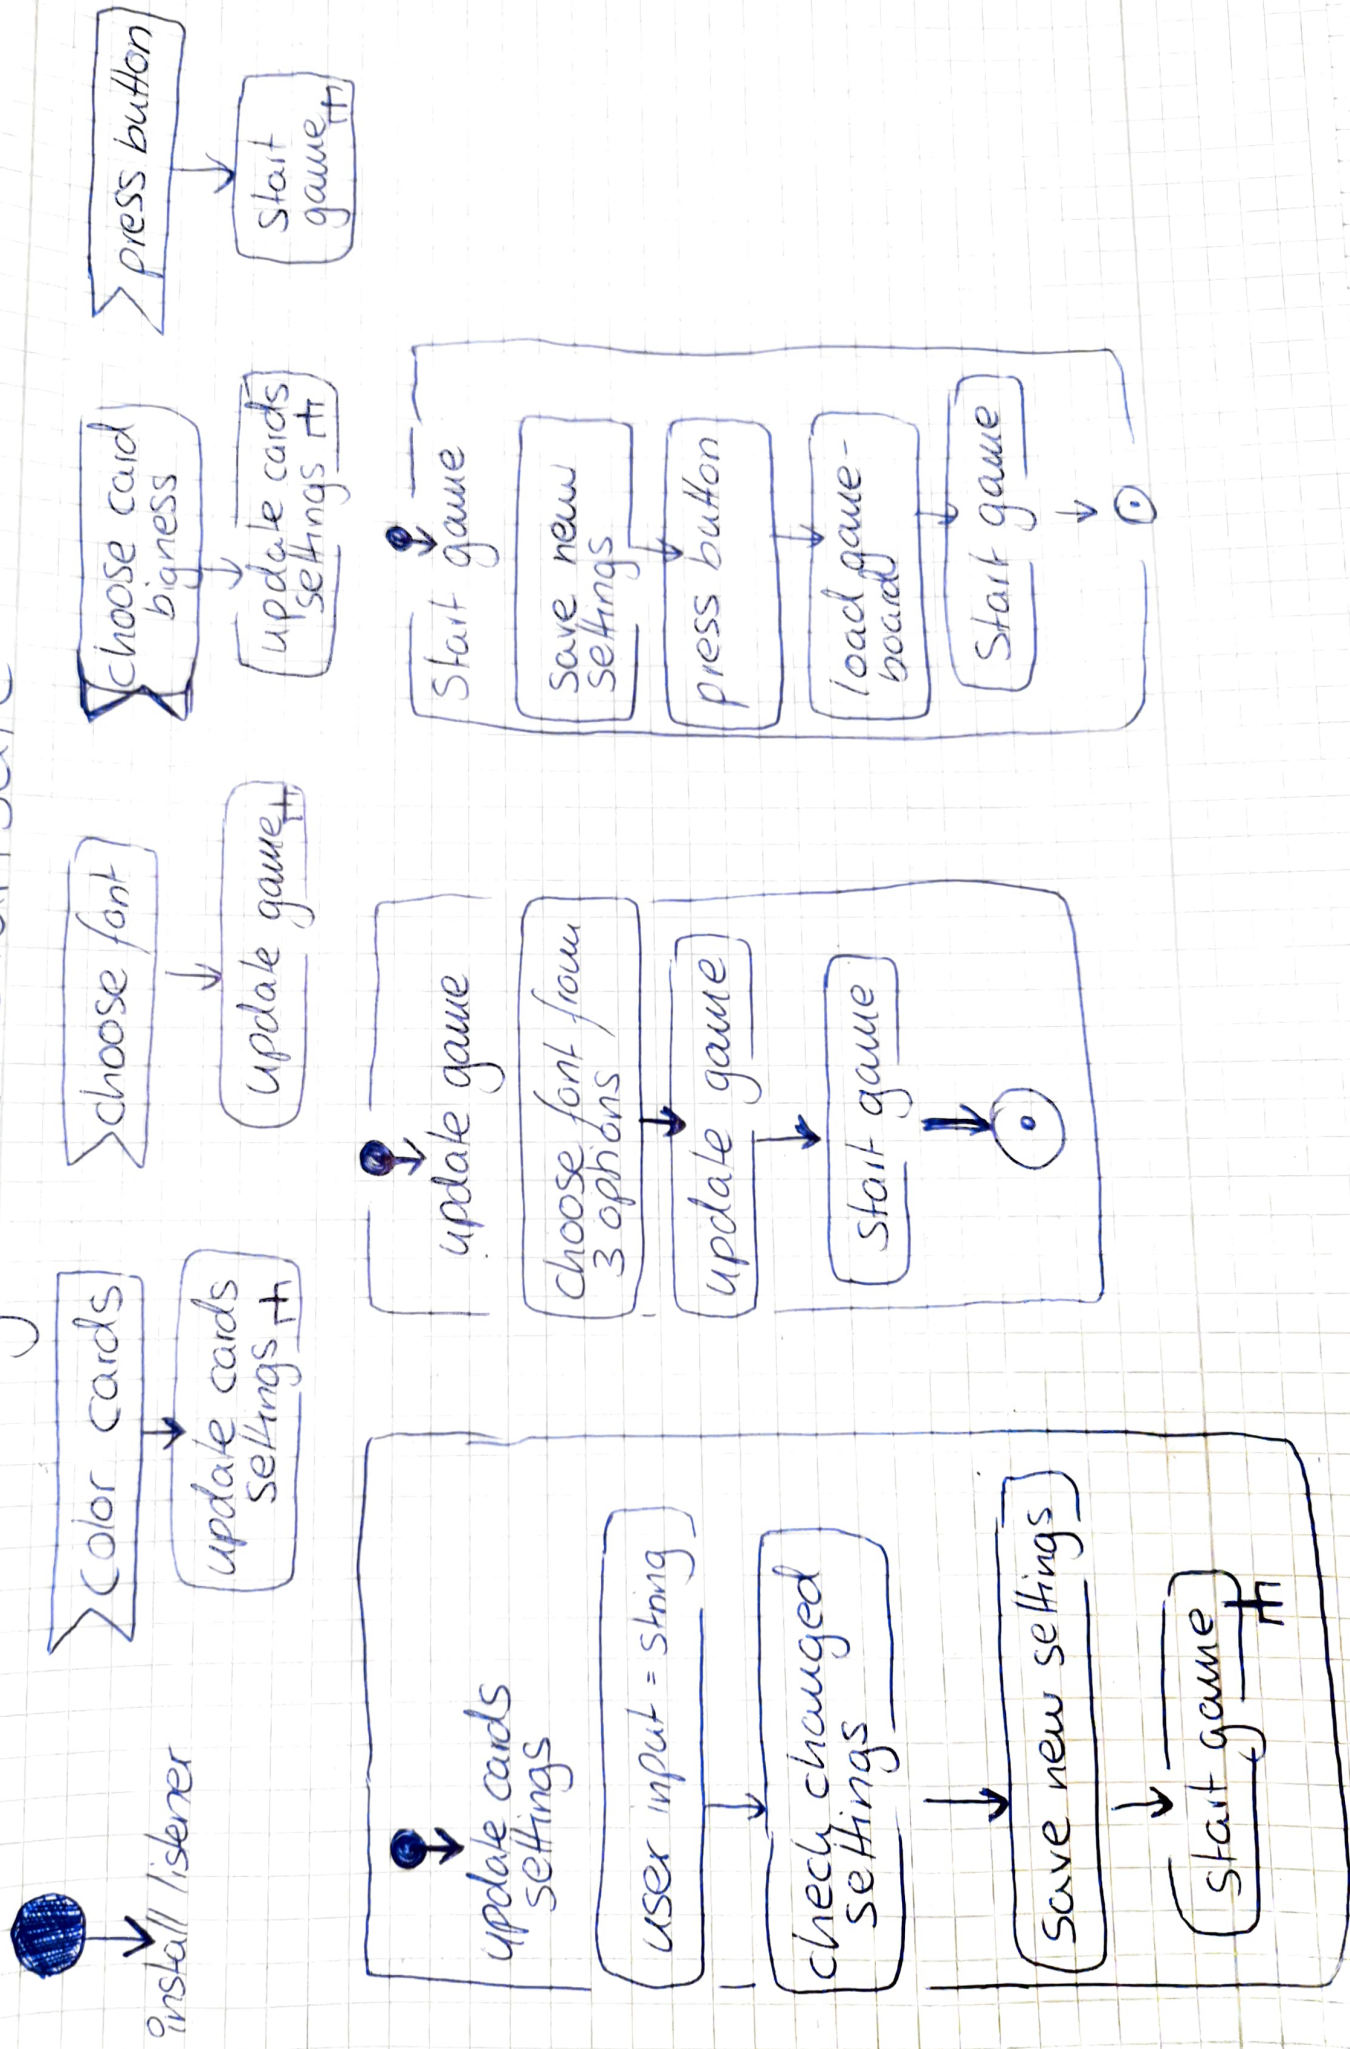 install listener
color cards
update cards
settings
choose font
update game
choose card
bigness
update cards
settings
press button
start
game
update cards
settings
user input = string
chech changed
settings
save new settings
start game
update game
choose font from
3 options
update game
start game
Start game
save new
settings
press button
load game-
board
Start game